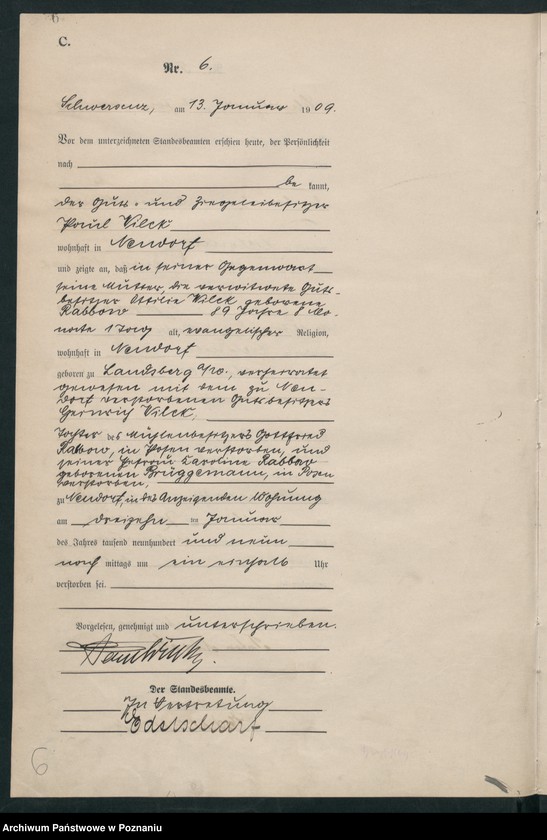 6
C.
Nr. 6.
Schwersenz, am 13. Januar 1909.
Vor dem unterzeichneten Standesbeamten erschien heute, der Persönlichkeit
nach
be kannt,
der Guts- und Ziegeleibesitzer
Paul Vilck
wohnhaft in Neudorf
und zeigte an, daß in seiner Gegenwart
seine Mutter, die verwitwete Guts-
besitzer Ottilie Vilck geborene
Rabbow 89 Jahre 8 Mo-
nate 1 Tag alt, evangelischer Religion,
wohnhaft in Neudorf
geboren zu Landsberg a/W., verheiratet
gewesen mit dem zu Neu-
dorf verstorbenen Gutsbesitzer
Heinrich Vilck,
Tochter des Mühlenbesitzers Gottfried
Rabbow, in Posen verstorben, und
seiner Ehefrau Caroline Rabbow
geborenen Brüggemann, in Posen
verstorben,
zu Neudorf, in des Anzeigenden Wohnung
am dreizehn ten Januar
des Jahres tausend neunhundert und neun
nach mittags um ein einhalb Uhr
verstorben sei.
Vorgelesen, genehmigt und unterschrieben.
Paul Vilck.
Der Standesbeamte.
In Vertretung
Edelscharf
6
Archiwum Państwowe w Poznaniu